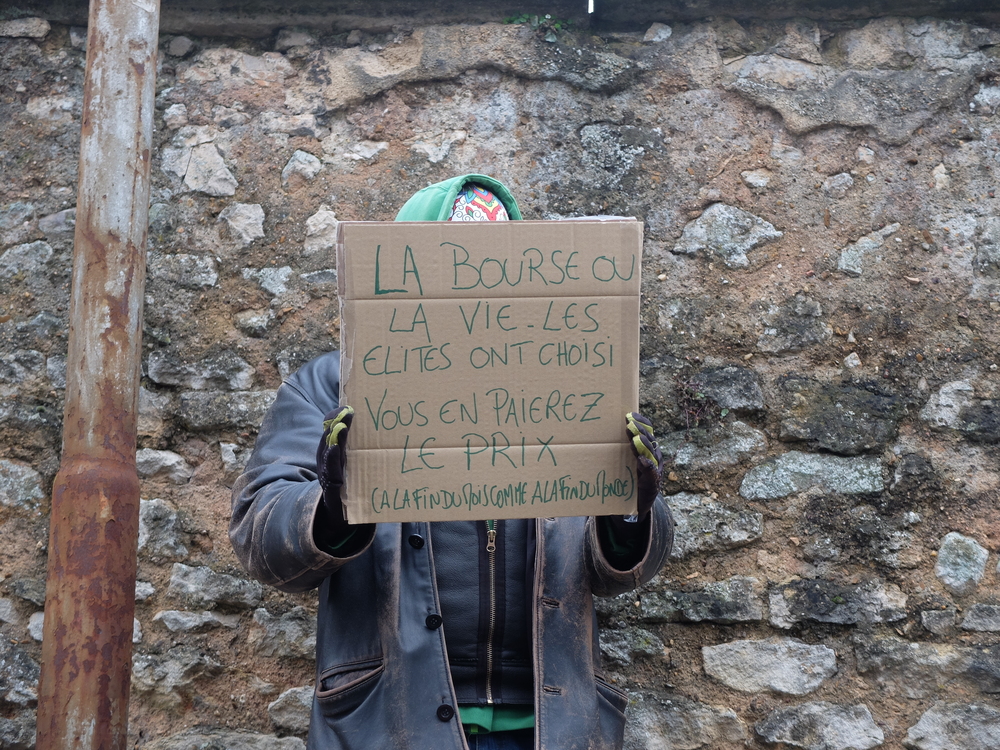 LA BOURSE OU
LA VIE. LES
ELITES ONT CHOISI
VOUS EN PAIEREZ
LE PRIX
(A LA FIN DU MOIS COMME A LA FIN DU MONDE)